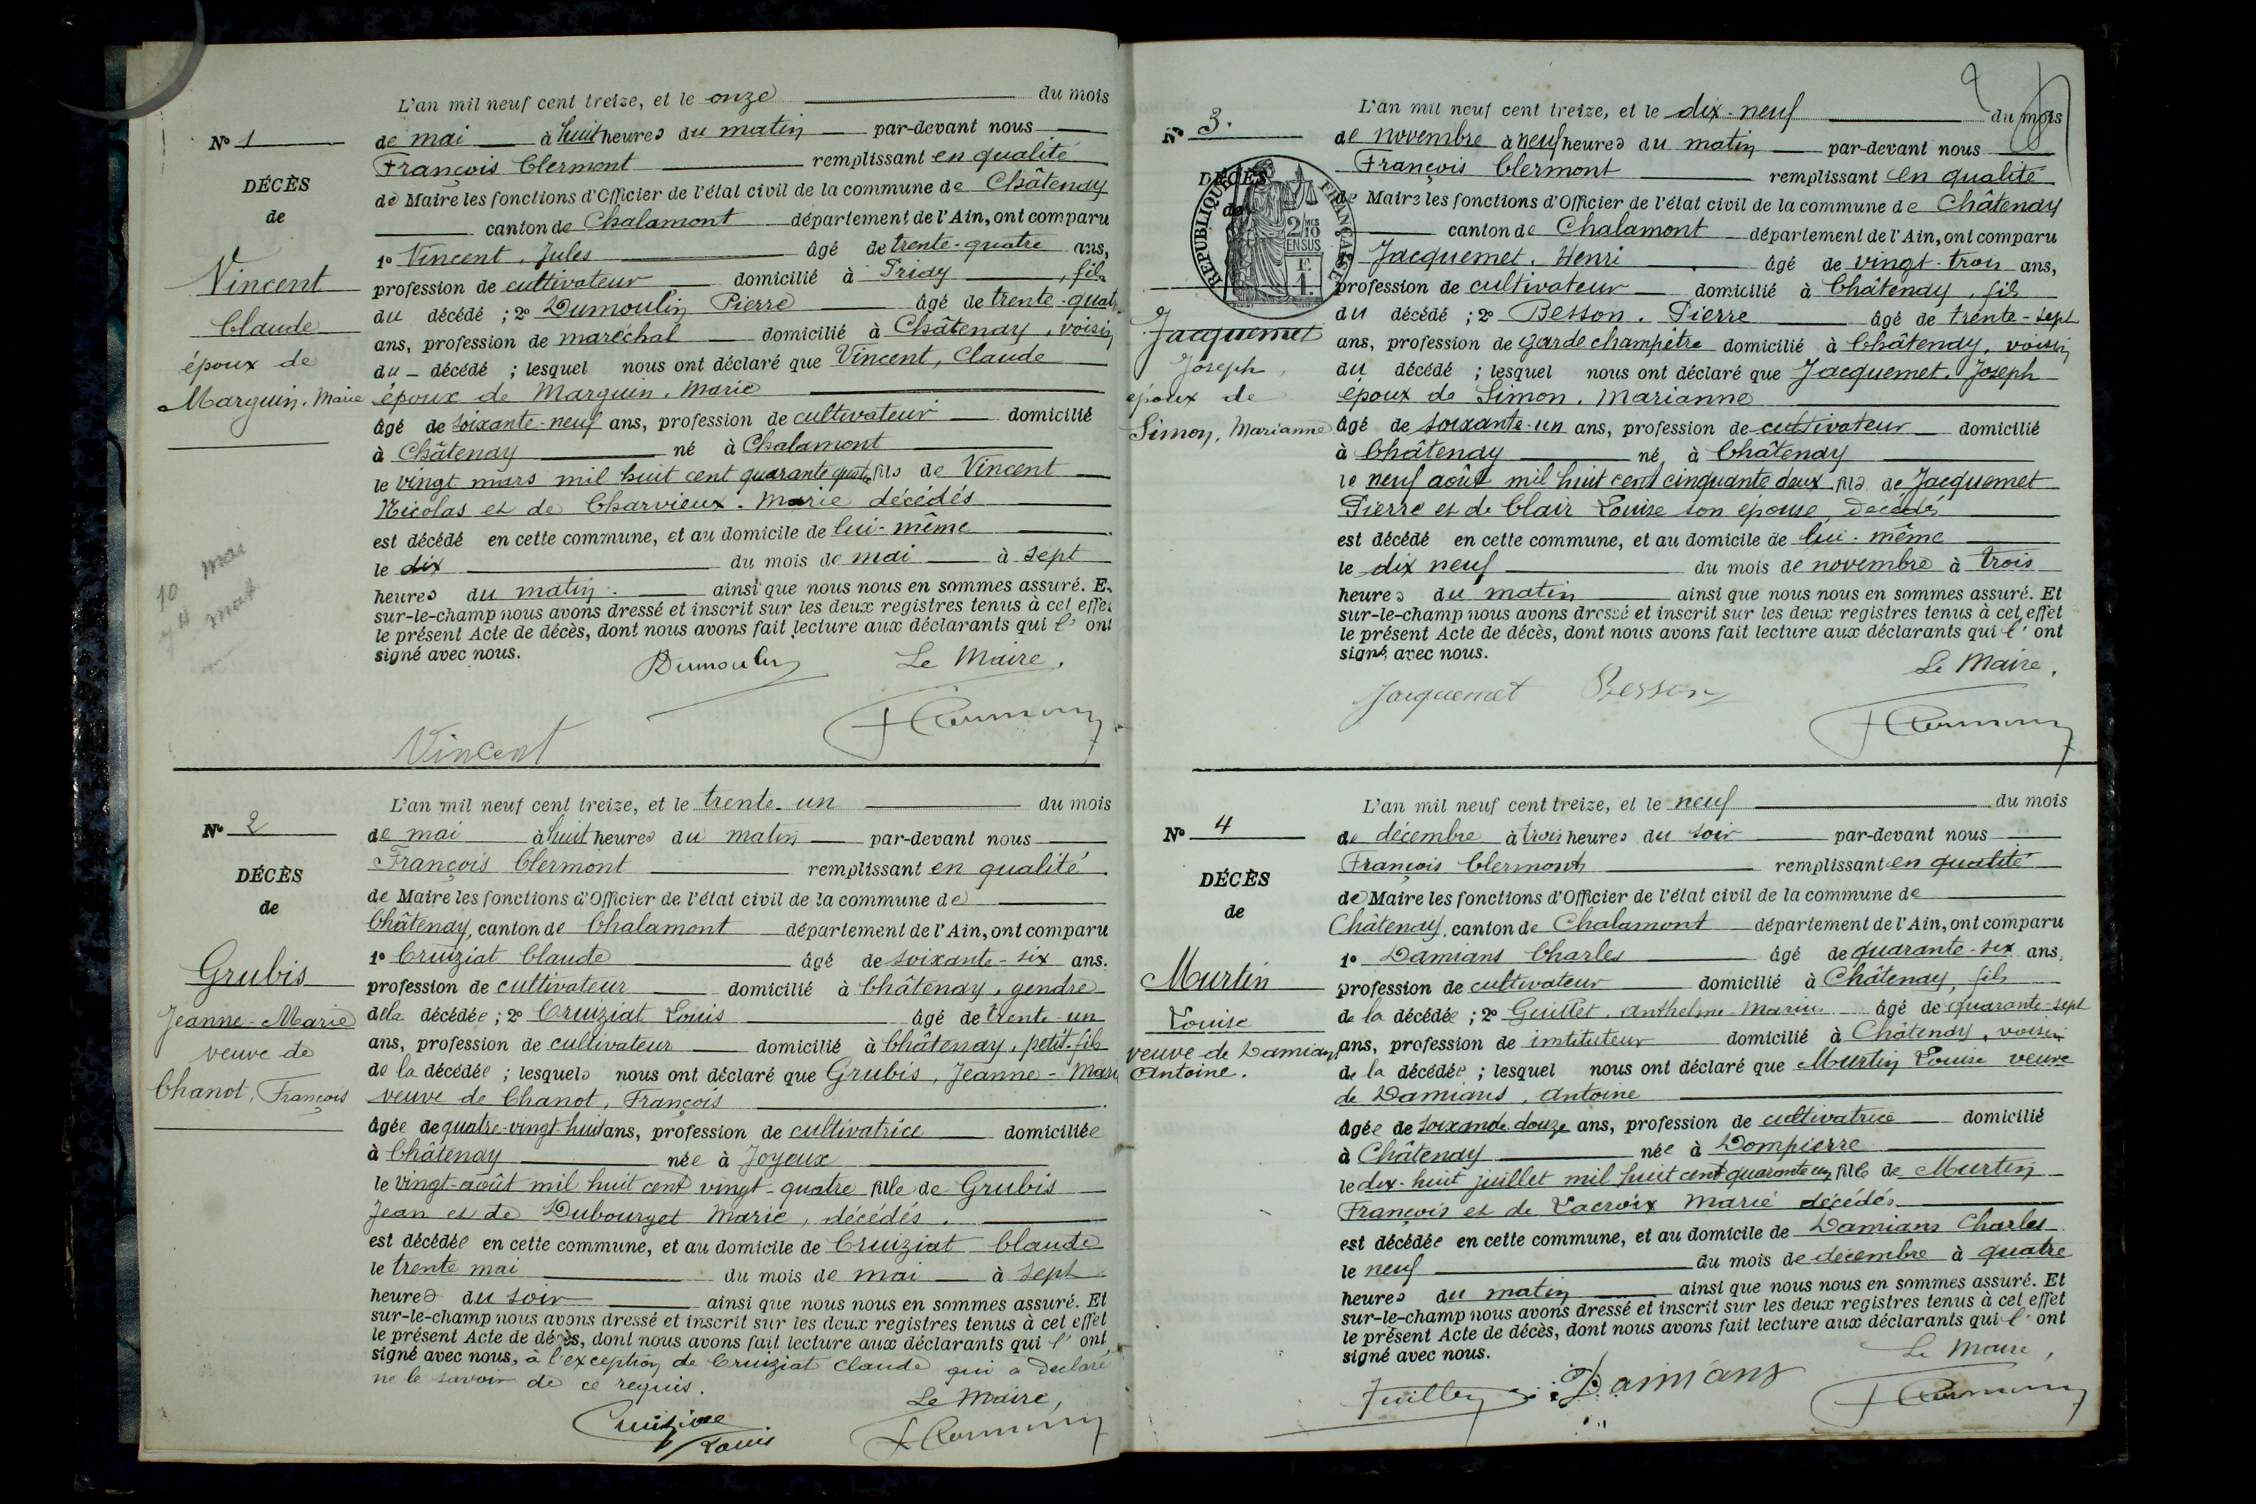 N° 1
DÉCÈS
de
Vincent
Claude
époux de
Marguin, Marie
10 mai
L'an mil neuf cent treize, et le onze du mois
de mai à huit heures du matin par-devant nous
François Clermont remplissant en qualité
de Maire les fonctions d'Officier de l'état civil de la commune de Châtenay
canton de Chalamont département de l'Ain, ont comparu
1° Vincent, Jules âgé de trente-quatre ans,
profession de cultivateur domicilié à Priay, fils
du décédé ; 2° Dumoulin Pierre âgé de trente-quat
ans, profession de maréchal domicilié à Châtenay, voisin
du décédé ; lesquel nous ont déclaré que Vincent, Claude
époux de Marguin, Marie
âgé de soixante-neuf ans, profession de cultivateur domicilié
à Châtenay né à Chalamont
le vingt mars mil huit cent quarante quatre fils de Vincent
Nicolas et de Charvieux, Marie décédés
est décédé en cette commune, et au domicile de lui-même
le dix du mois de mai à sept
heures du matin. ainsi que nous nous en sommes assuré. E
sur-le-champ nous avons dressé et inscrit sur les deux registres tenus à cet effet
le présent Acte de décès, dont nous avons fait lecture aux déclarants qui l' ont
signé avec nous.
Dumoulin Le Maire,
Vincent
N° 2
DÉCÈS
de
Grubis
Jeanne-Marie
veuve de
Chanot, François
L'an mil neuf cent treize, et le trente-un du mois
de mai à huit heures du matin par-devant nous
François Clermont remplissant en qualité
de Maire les fonctions d'Officier de l'état civil de la commune de
Châtenay, canton de Chalamont département de l'Ain, ont comparu
1° Cruiziat Claude âgé de soixante-six ans.
profession de cultivateur domicilié à Châtenay, gendre
de la décédée ; 2° Cruiziat Louis âgé de trente-un
ans, profession de cultivateur domicilié à Châtenay, petit-fils
de la décédée ; lesquels nous ont déclaré que Grubis, Jeanne-Marie
veuve de Chanot, François
âgée de quatre-vingt-huit ans, profession de cultivatrice domiciliée
à Châtenay née à Joyeux
le vingt-août mil huit cent vingt-quatre fille de Grubis
Jean et de Dubourget Marie, décédés.
est décédée en cette commune, et au domicile de Cruiziat Claude
le trente mai du mois de mai à sept
heures du soir ainsi que nous nous en sommes assuré. Et
sur-le-champ nous avons dressé et inscrit sur les deux registres tenus à cet effet
le présent Acte de décès, dont nous avons fait lecture aux déclarants qui l' ont
signé avec nous, à l'exception de Cruiziat Claude qui a déclaré
ne le savoir de ce requis.
Le Maire,
Louis
N° 3.
DÉCÈS
de
RÉPUBLIQUE FRANÇAISE
2/10 EN SUS
F. 1.
Jacquemet
Joseph,
époux de
Simon, Marianne
L'an mil neuf cent treize, et le dix-neuf du mois
de novembre à neuf heures du matin par-devant nous
François Clermont remplissant en qualité
de Maire les fonctions d'Officier de l'état civil de la commune de Châtenay
canton de Chalamont département de l'Ain, ont comparu
Jacquemet, Henri âgé de vingt-trois ans,
profession de cultivateur domicilié à Châtenay, fils
du décédé ; 2° Besson, Pierre âgé de trente-sept
ans, profession de garde champêtre domicilié à Châtenay, voisin
du décédé ; lesquel nous ont déclaré que Jacquemet, Joseph
époux de Simon, Marianne
âgé de soixante-un ans, profession de cultivateur domicilié
à Châtenay né à Châtenay
le neuf août mil huit cent cinquante deux fils de Jacquemet
Pierre et de Clair Louise son épouse, décédés
est décédé en cette commune, et au domicile de lui-même
le dix neuf du mois de novembre à trois
heures du matin ainsi que nous nous en sommes assuré. Et
sur-le-champ nous avons dressé et inscrit sur les deux registres tenus à cet effet
le présent Acte de décès, dont nous avons fait lecture aux déclarants qui l' ont
signé avec nous.
Le Maire,
Jacquemet Besson
N° 4
DÉCÈS
de
Murtin
Louise
veuve de Damians
Antoine.
L'an mil neuf cent treize, et le neuf du mois
de décembre à trois heures du soir par-devant nous
François Clermont remplissant en qualité
de Maire les fonctions d'Officier de l'état civil de la commune de
Châtenay, canton de Chalamont département de l'Ain, ont comparu
1° Damians Charles âgé de quarante-six ans,
profession de cultivateur domicilié à Châtenay, fils
de la décédée ; 2° Guillet, Anthelme Marius âgé de quarante-sept
ans, profession de instituteur domicilié à Châtenay, voisin
de la décédée ; lesquel nous ont déclaré que Murtin Louise veuve
de Damians, Antoine
âgée de soixante-douze ans, profession de cultivatrice domicilié
à Châtenay née à Dompierre
le dix-huit juillet mil huit cent quarante un fille de Murtin
François et de Lacroix Marie décédés
est décédée en cette commune, et au domicile de Damians Charles
le neuf du mois de décembre à quatre
heures du matin ainsi que nous nous en sommes assuré. Et
sur-le-champ nous avons dressé et inscrit sur les deux registres tenus à cet effet
le présent Acte de décès, dont nous avons fait lecture aux déclarants qui l' ont
signé avec nous.
Le Maire,
Damians